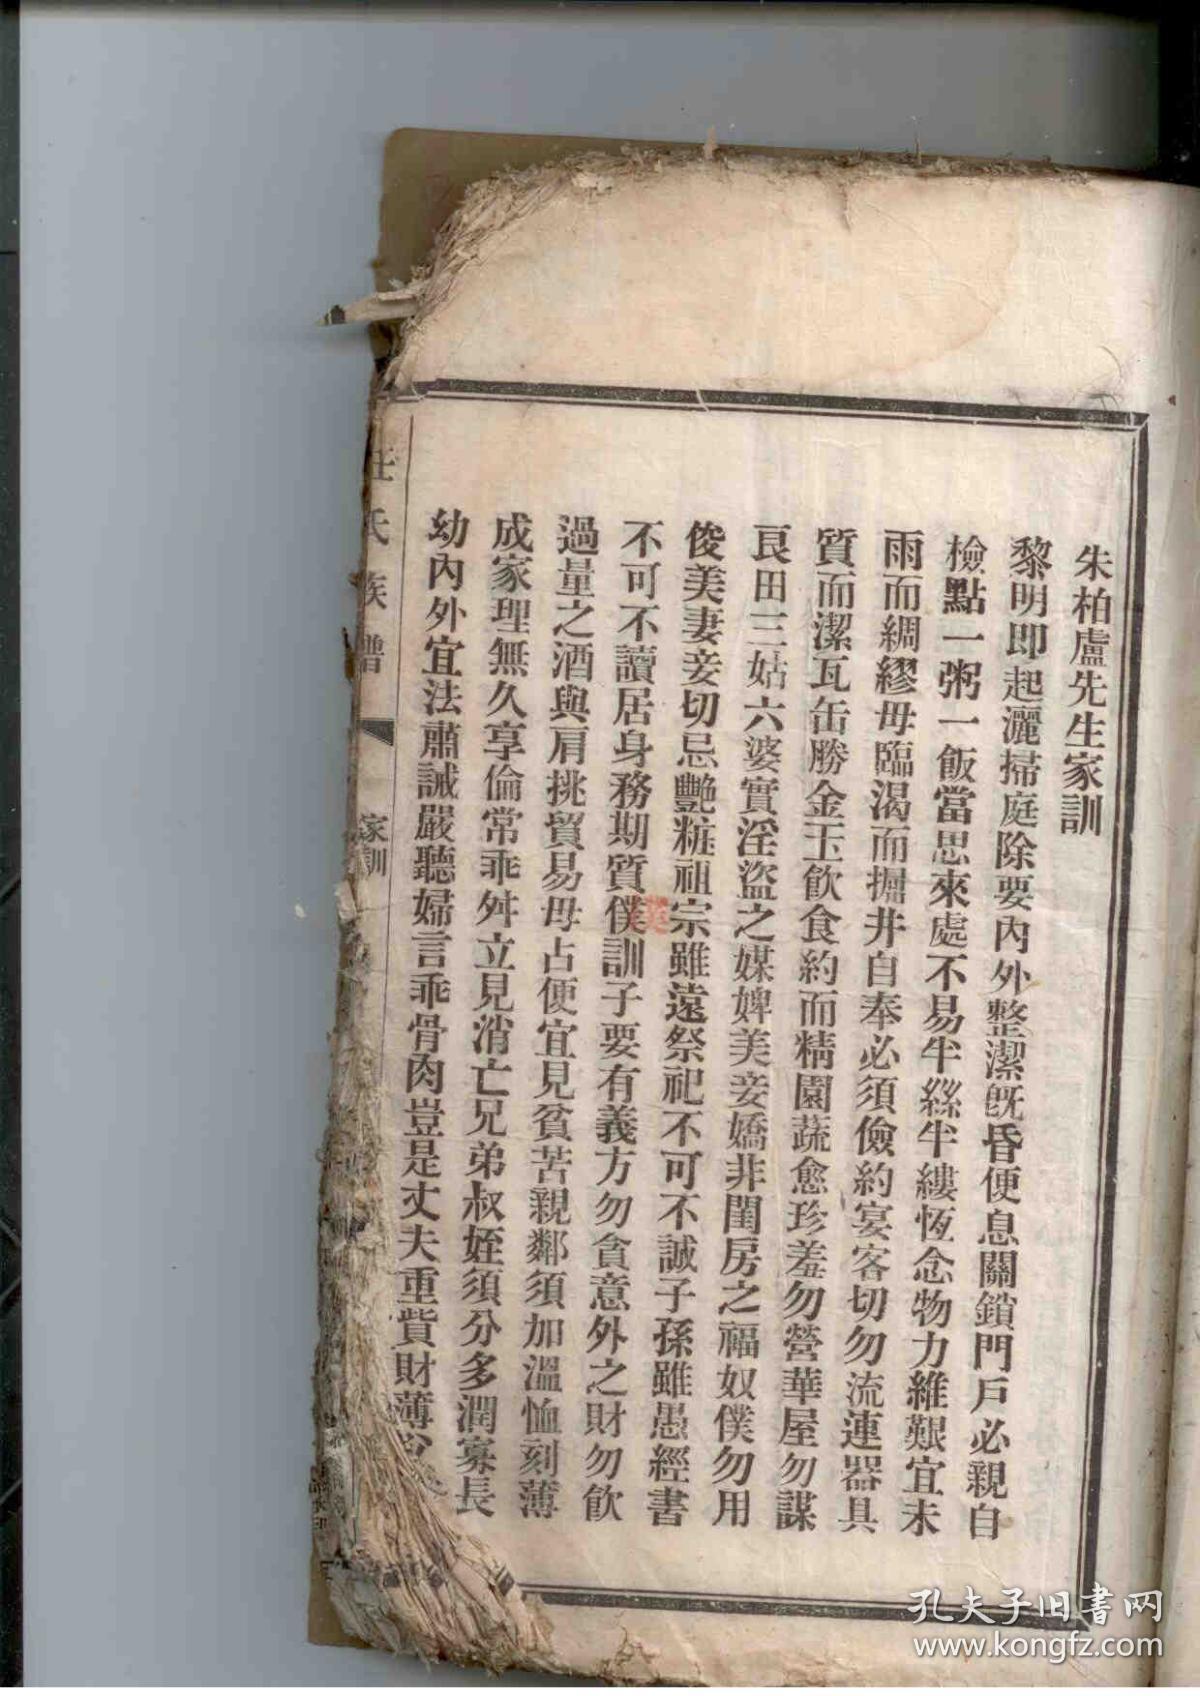 朱柏盧先生家訓
黎明即起灑掃庭除要內外整潔旣昏便息關鎖門戶必親自
檢點一粥一飯當思來處不易半絲半縷恆念物力維艱宜未
雨而綢繆毋臨渴而掘井自奉必須儉約宴客切勿流連器具
質而潔瓦缶勝金玉飲食約而精園蔬愈珍羞勿營華屋勿謀
良田三姑六婆實淫盜之媒婢美妾嬌非閨房之福奴僕勿用
俊美妻妾切忌艷粧祖宗雖遠祭祀不可不誠子孫雖愚經書
不可不讀居身務期質僕訓子要有義方勿貪意外之財勿飲
過量之酒與肩挑貿易毋占便宜見貧苦親鄰須加溫恤刻薄
成家理無久享倫常乖舛立見消亡兄弟叔姪須分多潤寡長
幼內外宜法肅誡嚴聽婦言乖骨肉豈是丈夫重貲財薄父
氏族譜
家訓
孔夫子旧書网
www.kongfz.com